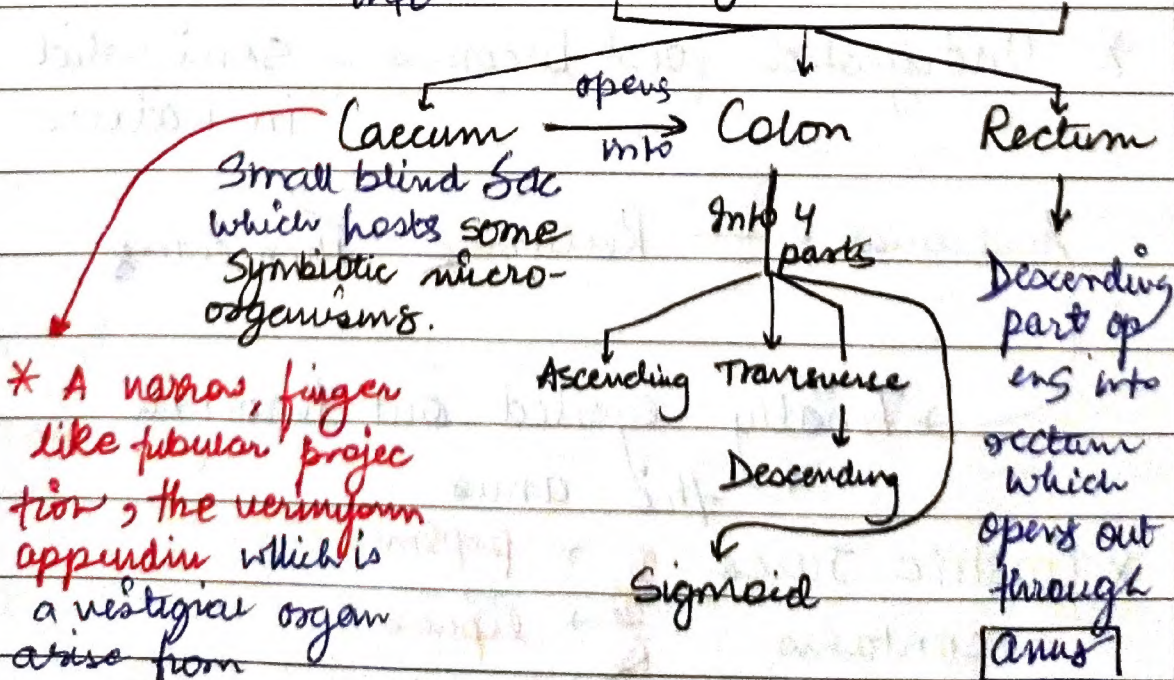 into
opens
Caecum → Colon Rectum
into
Small blind Sac
which hosts some
Symbiotic micro-
organisms.
Into 4
parts
Ascending Transverse
Descending
Sigmoid
Descending
part op
ens into
rectum
which
opens out
through
anus
* A narrow, finger
like tubular projec
tion, the vermiform
appendix which is
a vestigial organ
arise from